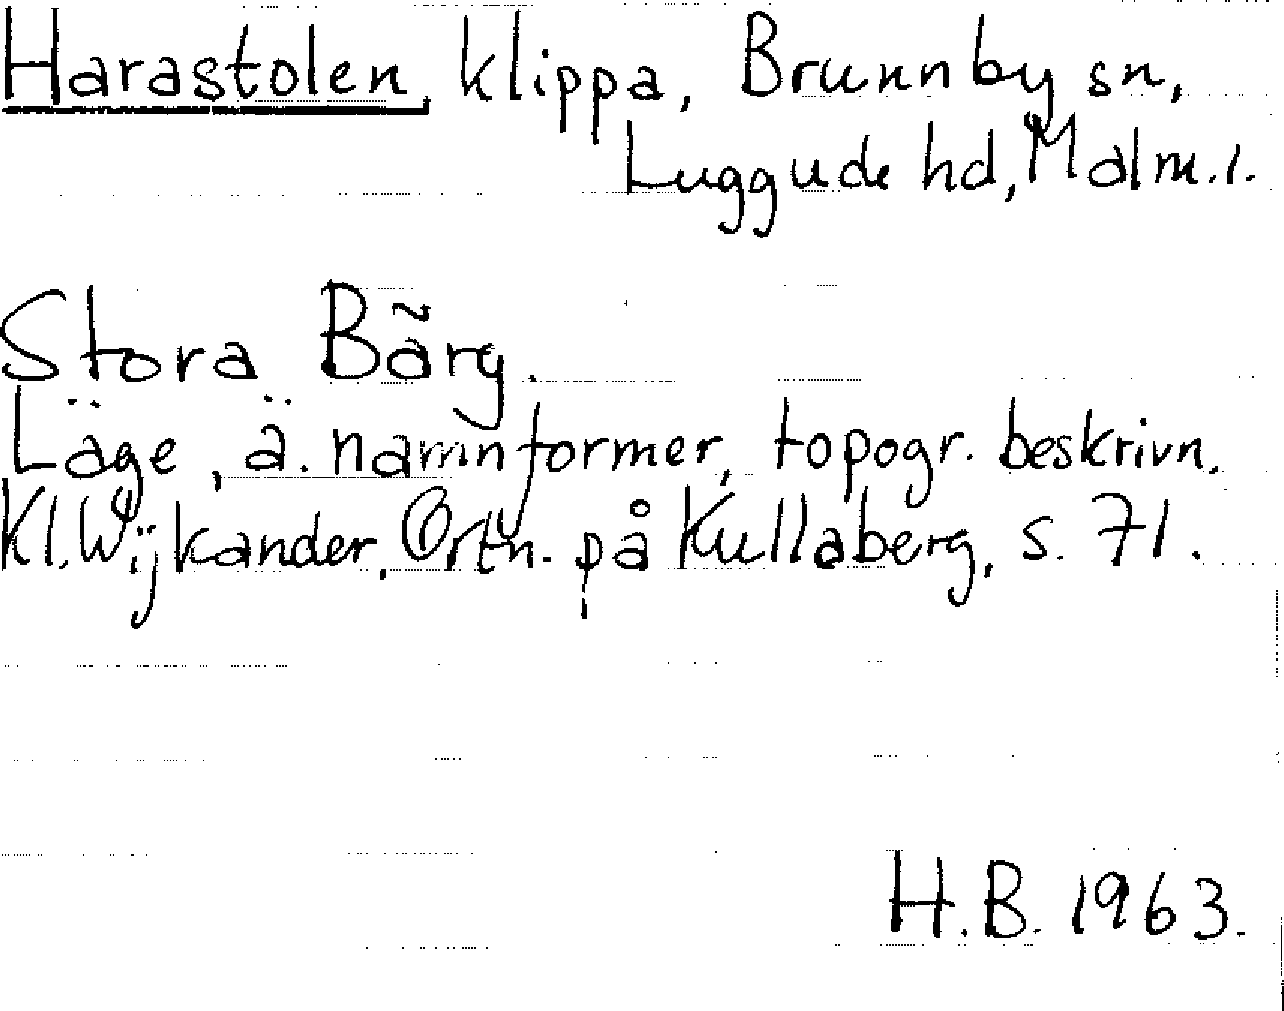 Harastolen, klippa, Brunnby sn,
Luggude hd, Malm.l.
Stora Bãrg.
Läge, ä. namnformer, topogr. beskrivn.
Kl. Wijkander, Ortn. på Kullaberg, s. 71.
H.B. 1963.